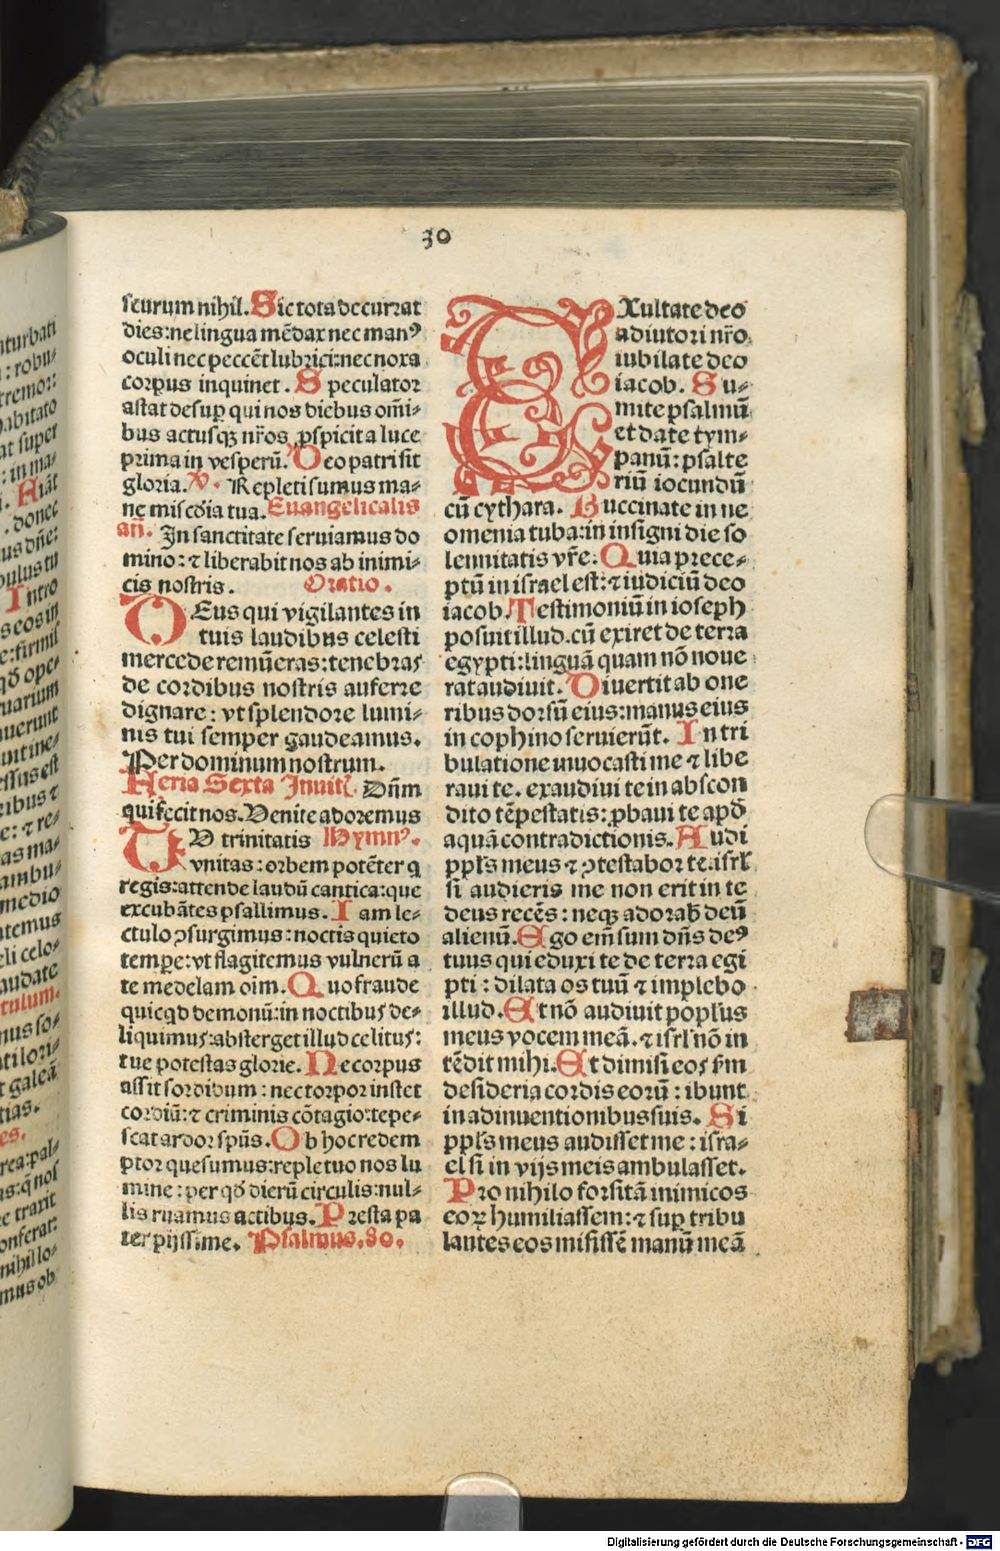 30
scurum nihil. Sic tota decurrat
dies: ne lingua mēdax nec manꝰ
oculi nec peccēt lubrici: nec noxa
corpus inquinet. Speculator
astat desuꝑ qui nos diebus om̄i⸗
bus actusqꝫ nr̄os ꝓspicit a luce
prima in vesperū. Deo patri sit
gloria. V. Repleti sumus ma⸗
ne mis cōia tua. Euangelicalis
an̄. In sanctitate seruiamus do
mino: ⁊ liberabit nos ab inimi⸗
cis nostris. Oratio.
DEus qui vigilantes in
tuis laudibus celesti
mercede remūeras: tenebras
de cordibus nostris auferre
dignare: vt splendore lumi⸗
nis tui semper gaudeamus.
Per dominum nostrum.
Feria Sexta Inuit̄ Dn̄m
qui fecit nos. Venite adoremus
TV trinitatis Hymnꝰ.
vnitas: orbem potēter q
regis: attende laudū cantica: que
excubātes psallimus. Iam le⸗
ctulo ꝯsurgimus: noctis quieto
tempe: vt flagitemus vulnerū a
te medelam oīm. Quo fraude
quicqd demonū: in noctibus de⸗
liquimus: absterget illud celitus:
tue potestas glorie. Ne corpus
assit sordidum: nec torpor instet
cordiū: ⁊ criminis cōtagio: tepe⸗
scat ardor spūs. Ob hoc redem
ptor quesumus: reple tuo nos lu
mine: per qd̄ dierū circulis: nul⸗
lis ruamus actibus. Presta pa
ter pijssime. Psalmus. 80.
EXultate deo
adiutori nr̄o
iubilate deo
iacob. Su⸗
mite psalmū
et date tym⸗
panū: psalte
riū iocundū
cū cythara. Buccinate in ne
omenia tuba: in insigni die so
lennitatis vr̄e. Quia prece⸗
ptū in israel est: ⁊ iudiciū deo
iacob. Testimoniū in ioseph
posuit illud. cū exiret de terra
egypti: linguā quam nō noue
rat audiuit. Diuertit ab one
ribus dorsū eius: manus eius
in cophino seruierūt. In tri
bulatione inuocasti me ⁊ libe
raui te. exaudiui te in abscon
dito tēpestatis: ꝓbaui te apd̄
aquā contradictionis. Audi
ppl̄s meus ⁊ ꝯtestabor te: isrl̄
si audieris me non erit in te
deus recēs: neqꝫ adorab̄ deū
alienū. Ego em̄ sum dn̄s deꝰ
tuus qui eduxi te de terra egi
pti: dilata os tuū ⁊ implebo
illud. Et nō audiuit popl̄us
meus vocem meā. ⁊ isrl̄ nō in
tēdit mihi. Et dimisi eos ẜm
desideria cordis eorū: ibunt
in adinuentionibus suis. Si
ppl̄s meus audisset me: isra⸗
el si in vijs meis ambulasset.
Pro nihilo forsitā inimicos
eoꝝ humiliassem: ⁊ suꝑ tribu
lantes eos misissē manū meā
Digitalisierung gefördert durch die Deutsche Forschungsgemeinschaft - DFG